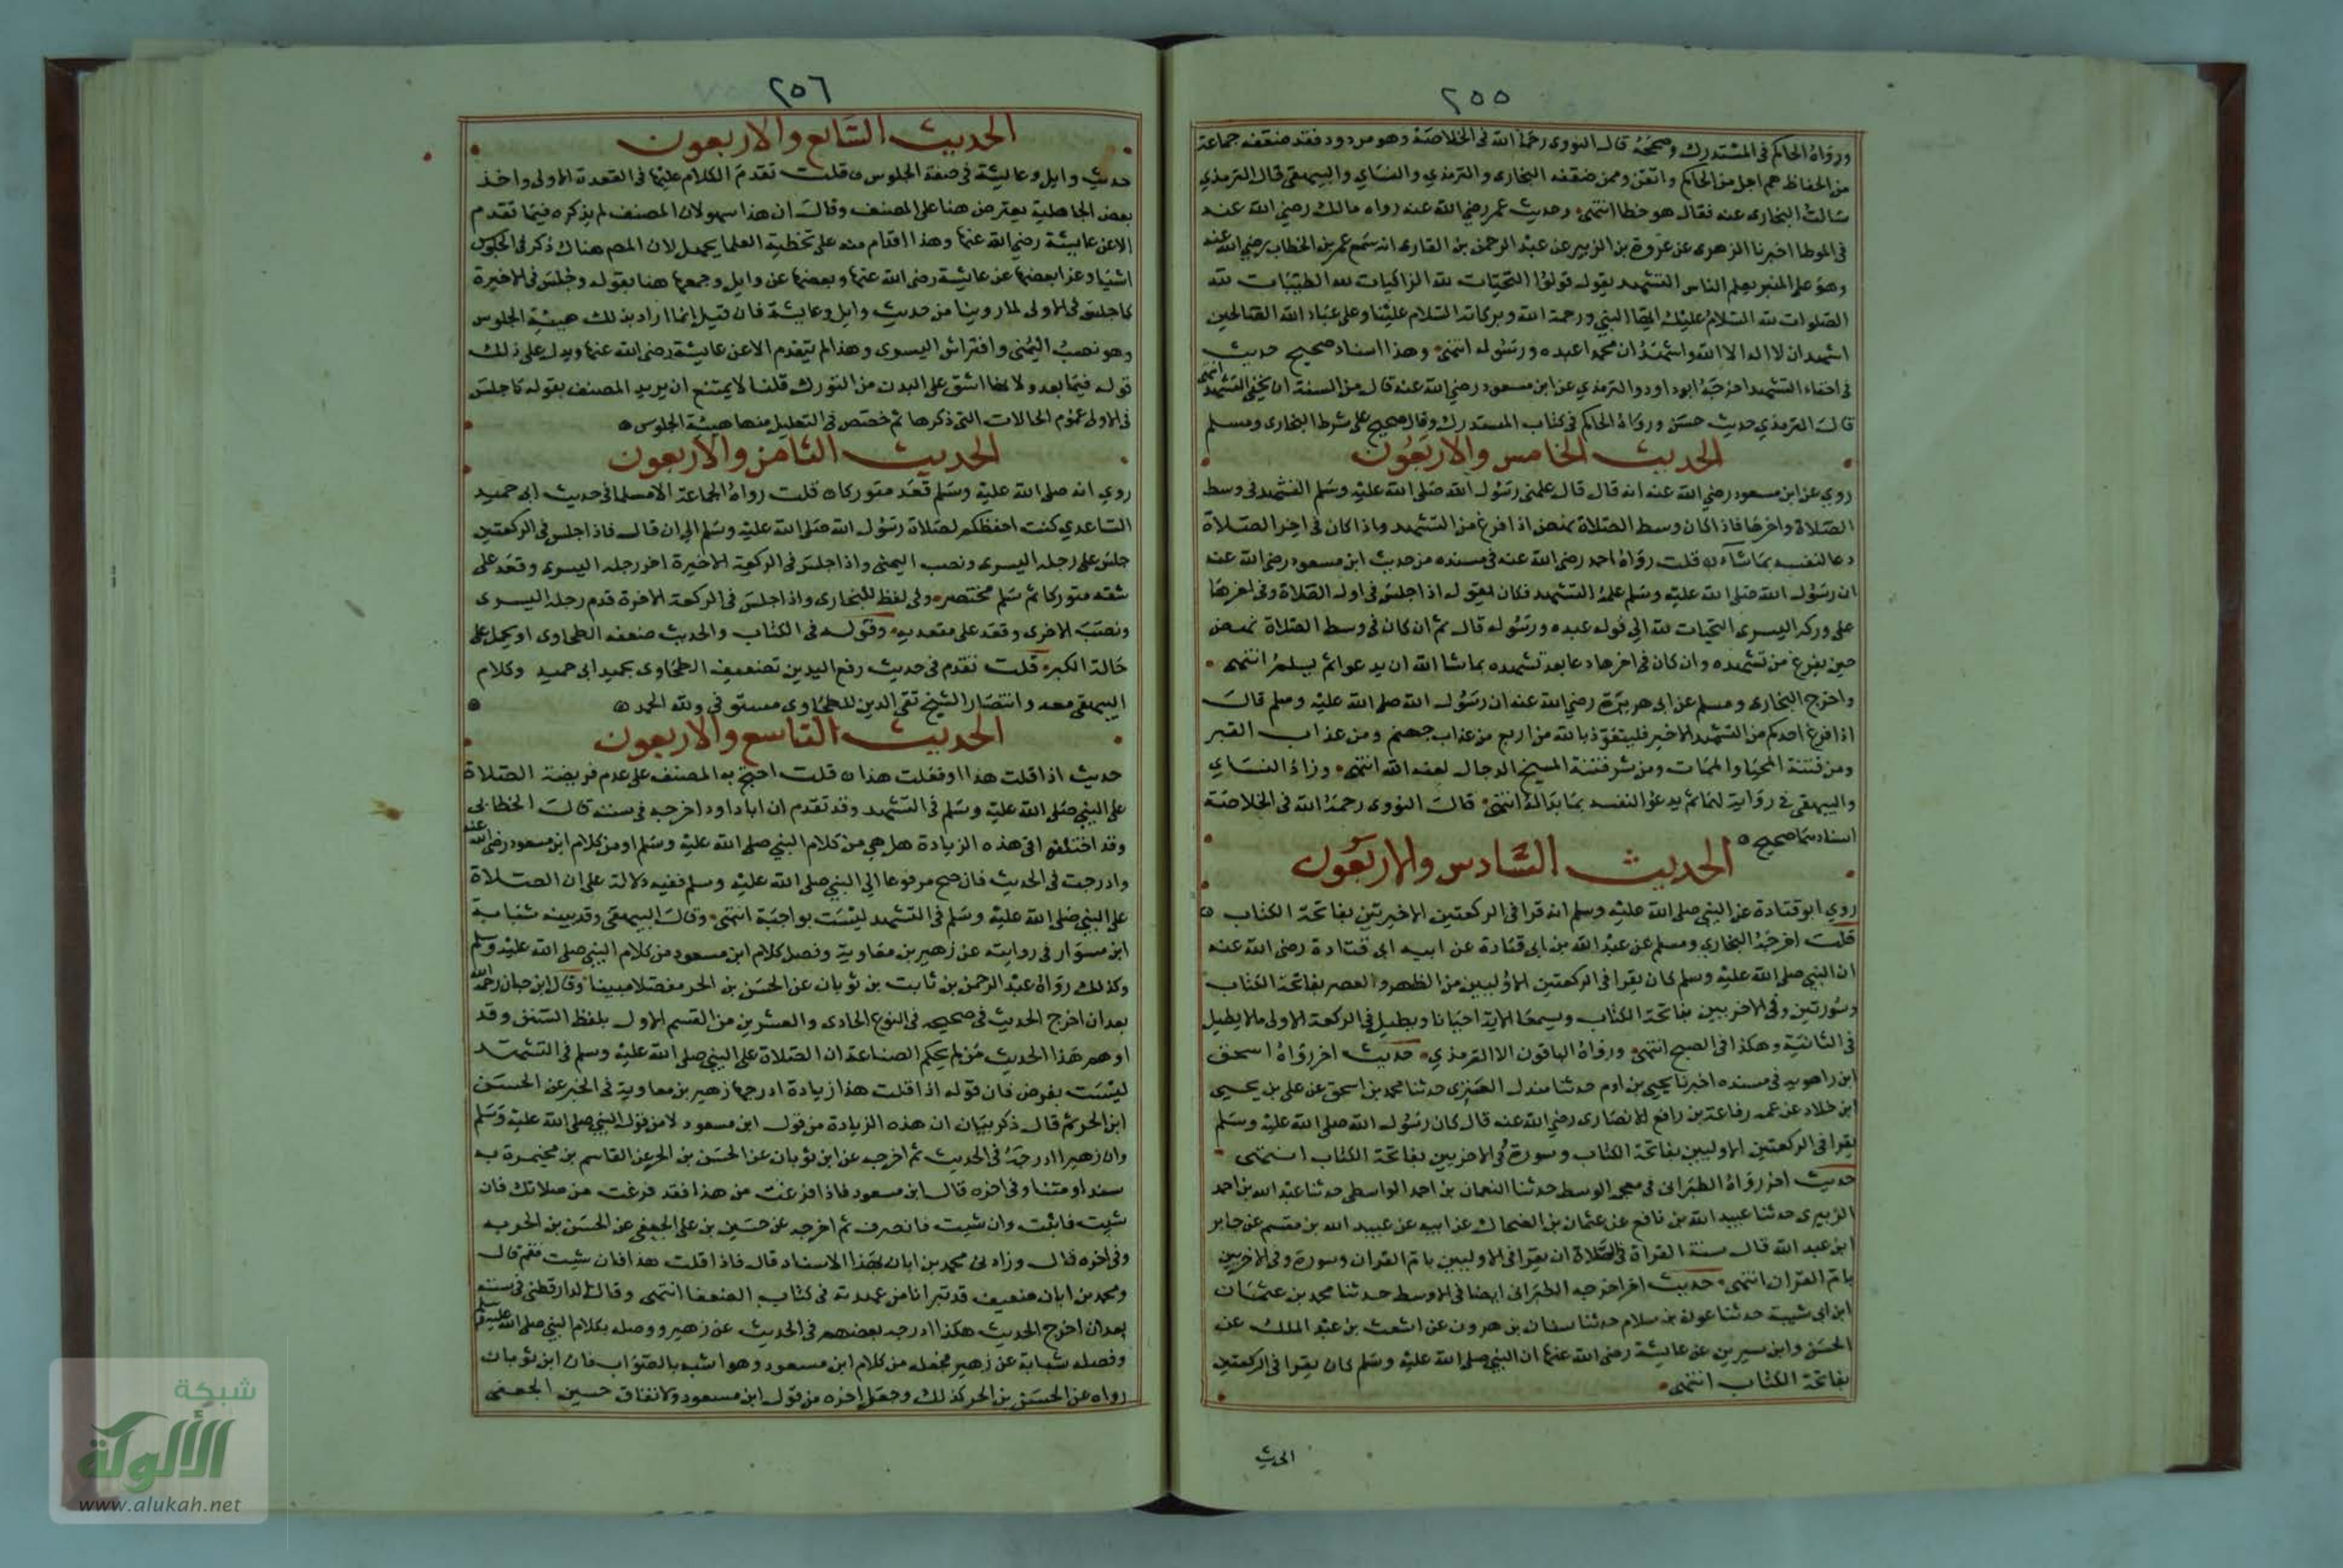 ٢٥٥
ورواه الحاكم في المستدرك وصححه قال النووي رحمه الله في الخلاصة وهو مردود فقد ضعفه جماعة
من الحفاظ هم اجل من الحاكم واتقن وممن ضعفه البخارى والترمذي والنساي والبيهقى قال الترمذي
سالت البخارى عنه فقال هو خطا انتهى وحديث عمر رضي الله عنه رواه مالك رضي الله عنه
في الموطا اخبرنا الزهرى عن عروة بن الزبير عن عبد الرحمن بن القارى انه سمع عمر بن الخطاب رضي الله عنه
وهو على المنبر يعلم الناس التشهد يقوله قولوا التحيات لله الزاكيات لله الطيبات لله
الصلوات لله السلام عليك ايها النبي ورحمة الله وبركاته السلام علينا وعلى عباد الله الصالحين
اشهد ان لا اله الا الله واشهد ان محمدا عبده ورسوله انتهى وهذا اسناد صحيح حديث
في اخفاء التشهد اخرجه ابو داود والترمذي عن ابن مسعود رضي الله عنه قال من السنة ان يخفي التشهد انتهى
قال الترمذي حديث حسن ورواه الحاكم في كتاب المستدرك وقال صحيح على شرط البخارى ومسلم
الحديث الخامس والاربعون
روي عن ابن مسعود رضي الله عنه انه قال قال علمنى رسول الله صلى الله عليه وسلم التشهد في وسط
الصلاة واخرها فاذا كان وسط الصلاة نهض اذا فرغ من التشهد واذا كان في اخر الصلاة
دعا لنفسه بما شاء قلت رواه احمد رضي الله عنه في مسنده من حديث ابن مسعود رضي الله عنه
ان رسول الله صلى الله عليه وسلم علمه التشهد فكان يقول اذا جلس في اول الصلاة وفي اخرها
على وركه اليسرى التحيات لله الى قوله عبده ورسوله قال ثم ان كان في وسط الصلاة نهض
حين يفرغ من تشهده وان كان في اخرها دعا بعد تشهده بما شا الله ان يدعو ثم يسلم انتهى
واخرج البخارى ومسلم عن ابى هريرة رضي الله عنه ان رسول الله صلى الله عليه وسلم قال
اذا فرغ احدكم من التشهد الاخير فليتعوذ بالله من اربع من عذاب جهنم ومن عذاب القبر
ومن فتنة المحيا والممات ومن شر فتنة المسيح الدجال لعنه الله انتهى وزاد النساي
والبيهقى في رواية لهما ثم يدعو لنفسه بما بدا له انتهى قال النووي رحمه الله في الخلاصة
اسنادهما صحيح
الحديث السادس والاربعون
روي ابو قتادة عن النبي صلى الله عليه وسلم انه قرا في الركعتين الاخيرتين بفاتحة الكتاب
قلت اخرجه البخاري ومسلم عن عبد الله بن ابى قتادة عن ابيه ابى قتادة رضي الله عنه
ان النبي صلى الله عليه وسلم كان يقرا في الركعتين الاوليين من الظهر والعصر بفاتحة الكتاب
وسورتين وفي الاخريين بفاتحة الكتاب ويسمعنا الاية احيانا ويطيل في الركعة الاولى ما لا يطيل
في الثانية وهكذا في الصبح انتهى ورواه الباقون الا الترمذي حديث اخر رواه اسحق
ابن راهويه في مسنده اخبرنا يحيى بن ادم حدثنا مندل العنزى حدثنا محمد بن اسحق عن على بن يحيى
ابن خلاد عن عمه رفاعة بن رافع الانصارى رضي الله عنه قال كان رسول الله صلى الله عليه وسلم
يقرا في الركعتين الاوليين بفاتحة الكتاب وسورة وفي الاخريين بفاتحة الكتاب انتهى
حديث اخر رواه الطبرانى في معجمه الوسط حدثنا النعمان بن احمد الواسطى حدثنا عبد الله بن احمد
الزبيرى حدثنا عبيد الله بن نافع عن عثمان بن الضحاك عن ابيه عن عبيد الله بن مقسم عن جابر
ابن عبد الله قال سنة القراة في الصلاة ان يقرا في الاوليين بام القران وسورة وفي الاخريين
بام القران انتهى حديث اخر اخرجه الطبرانى ايضا في الاوسط حدثنا محمد بن عثمان
ابن ابى شيبة حدثنا عون بن سلام حدثنا سنان بن هرون عن اشعث بن عبد الملك عن
الحسن وابن سيرين عن عايشة رضي الله عنها ان النبي صلى الله عليه وسلم كان يقرا في الركعتين
بفاتحة الكتاب انتهى
الحديث
٢٥٦
الحديث السابع والاربعون
حديث وايل وعايشة في صفة الجلوس قلت تقدم الكلام عليهما في القعدة الاولى واخذ
بعض الجاهلية يعترض هنا على المصنف وقال ان هذا سهو لان المصنف لم يذكره فيما تقدم
الا عن عايشة رضي الله عنها وهذا اقدام منه على تخطية العلما بجهل لان المصـ هناك ذكر في الجلوس
اشيا وعزا بعضها عن عايشة رضي الله عنها وبعضها عن وايل وجمعها هنا بقوله وجلس في الاخيرة
كما جلس في الاولى لما روينا من حديث وايل وعايشة فان قيل انما اراد بذلك هيئة الجلوس
وهو نصب اليمنى وافتراش اليسرى وهذا لم يتقدم الا عن عايشة رضي الله عنها ويدل على ذلك
قوله فيما بعد ولانها اشق على البدن من التورك قلنا لا يمتنع ان يريد المصنف بقوله كما جلس
في الاولى عموم الحالات التى ذكرها ثم خصص في التعليل منها هيئة الجلوس
الحديث الثامن والاربعون
روي انه صلى الله عليه وسلم قعد متوركا قلت رواه الجماعة الا مسلما في حديث ابى حميد
الساعدي كنت احفظكم لصلاة رسول الله صلى الله عليه وسلم الى ان قال فاذا جلس في الركعتين
جلس على رجله اليسرى ونصب اليمنى واذا جلس في الركعة الاخيرة اخر رجله اليسرى وقعد على
شقه متوركا ثم سلم مختصر وفي لفظ للبخارى واذا جلس في الركعة الاخرة قدم رجله اليسرى
ونصب الاخرى وقعد على مقعدته وقوله في الكتاب والحديث ضعفه الطحاوى او يحمل على
حالة الكبر قلت تقدم في حديث رفع اليدين تضعيف الطحاوى لحديث ابى حميد وكلام
البيهقى معه وانتصار الشيخ تقى الدين للطحاوى مستوفى ولله الحمد
الحديث التاسع والاربعون
حديث اذا قلت هذا او فعلت هذا قلت احتج به المصنف على عدم فريضة الصلاة
على النبي صلى الله عليه وسلم في التشهد وقد تقدم ان ابا داود اخرجه في سننه قال الخطابى
وقد اختلفوا في هذه الزيادة هل هي من كلام النبي صلى الله عليه وسلم او من كلام ابن مسعود رضي الله عنه
وادرجت في الحديث فان صح مرفوعا الى النبي صلى الله عليه وسلم ففيه دلالة على ان الصلاة
على النبي صلى الله عليه وسلم في التشهد ليست بواجبة انتهى وقال البيهقى وقد بينه شبابة
ابن سوار في روايته عن زهير بن معاوية وفصل كلام ابن مسعود من كلام النبي صلى الله عليه وسلم
وكذلك رواه عبد الرحمن بن ثابت بن ثوبان عن الحسن بن الحر مفصلا مبينا وقال ابن حبان رحمه الله
بعد ان اخرج الحديث في صحيحه في النوع الحادى والعشرين من القسم الاول بلفظ السنن وقد
اوهم هذا الحديث من لم يحكم الصناعة ان الصلاة على النبي صلى الله عليه وسلم في التشهد
ليست بفرض فان قوله اذا قلت هذا زيادة ادرجها زهير بن معاوية في الخبر عن الحسن
ابن الحر ثم قال ذكر بيان ان هذه الزيادة من قول ابن مسعود لا من قول النبي صلى الله عليه وسلم
وان زهيرا ادرجه في الحديث ثم اخرجه عن ابن ثوبان عن الحسن بن الحر عن القاسم بن مخيمرة به
سندا ومتنا وفي اخره قال ابن مسعود فاذا فرغت من هذا فقد فرغت من صلاتك فان
شيت فاثبت وان شيت فانصرف ثم اخرجه عن حسين بن على الجعفى عن الحسن بن الحر به
وفي اخره قال وزادنى محمد بن ابان بهذا الاسناد قال فاذا قلت هذا فان شيت فقم قال
ومحمد بن ابان ضعيف قد تبرانا من عهدته في كتاب الضعفا انتهى وقال الدارقطنى في سننه
بعد ان اخرج الحديث هكذا ادرجه بعضهم في الحديث عن زهير ووصله بكلام النبي صلى الله عليه وسلم
وفصله شبابة عن زهير فجعله من كلام ابن مسعود وهو اشبه بالصواب فان ابن ثوبان
رواه عن الحسن بن الحر كذلك وجعل اخره من قول ابن مسعود ولاتفاق حسين الجعفى
شبكة
الألوكة
www.alukah.net